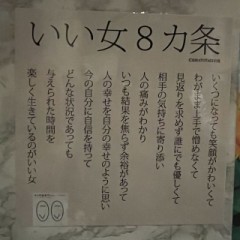 いい女8カ条
いくつになっても笑顔がかわいくて
わがまま上手で憎めなくて
見返りを求めず誰にでも優しくて
相手の気持ちに寄り添い
人の痛みがわかり
いつも結果を焦らず余裕があって
人の幸せを自分の幸せのように思い
今の自分に自信を持って
どんな状況であっても
与えられた時間を
楽しく生きているのがいい女